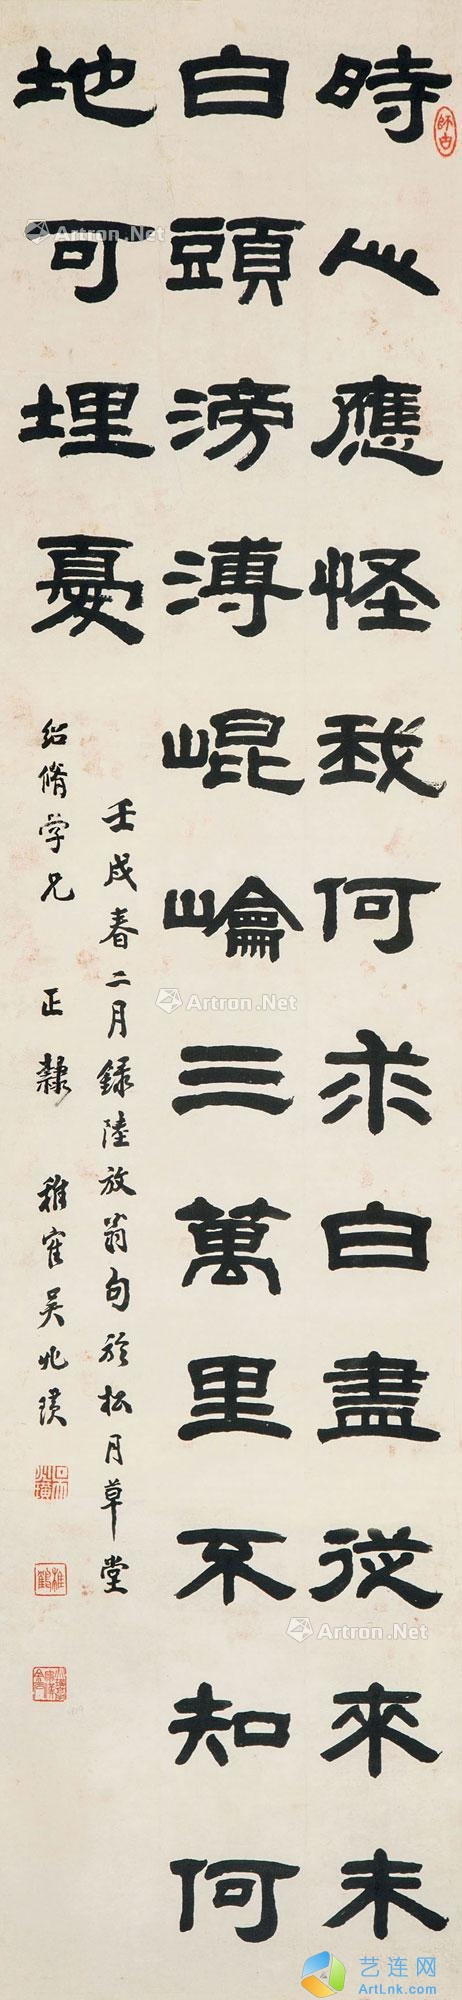 師古
時心應怪我何求白盡從來未
白頭滂溥崐崘三萬里不知何
地可埋憂
壬戌春二月録陸放翁句於松月草堂
紹脩学兄 正隸 稚隺吳兆璜
稚鶴
Artron.Net
Artron.Net
Artron.Net
Artron.Net
Artron.Net
艺连网
ArtLnk.Com